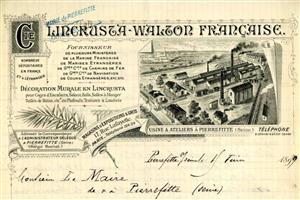 MAIRIE DE PIERREFITTE
Cie
LINCRUSTA-WALTON FRANÇAISE.
NOMBREUX
DÉPOSITAIRES
EN FRANCE
ET À L'ÉTRANGER
FOURNISSEUR
DE PLUSIEURS MINISTÈRES
DE LA MARINE FRANÇAISE
DE MARINES ÉTRANGÈRES
DE GDES CIES DE CHEMINS DE FER
DE GDES CIES DE NAVIGATION
DE COURS ÉTRANGÈRES, ETC. ETC.
DÉCORATION MURALE EN LINCRUSTA
pour Cages d'Escaliers, Salons, Salles à Manger
Salles de Bains, etc.
Adresser la Correspondance
à L'ADMINISTRATEUR DÉLÉGUÉ
À PIERREFITTE (Seine)
USINE & ATELIERS À PIERREFITTE (Seine)
TÉLÉPHONE
Pierrefitte, le
Monsieur le Maire
de
Pierrefitte (Seine)